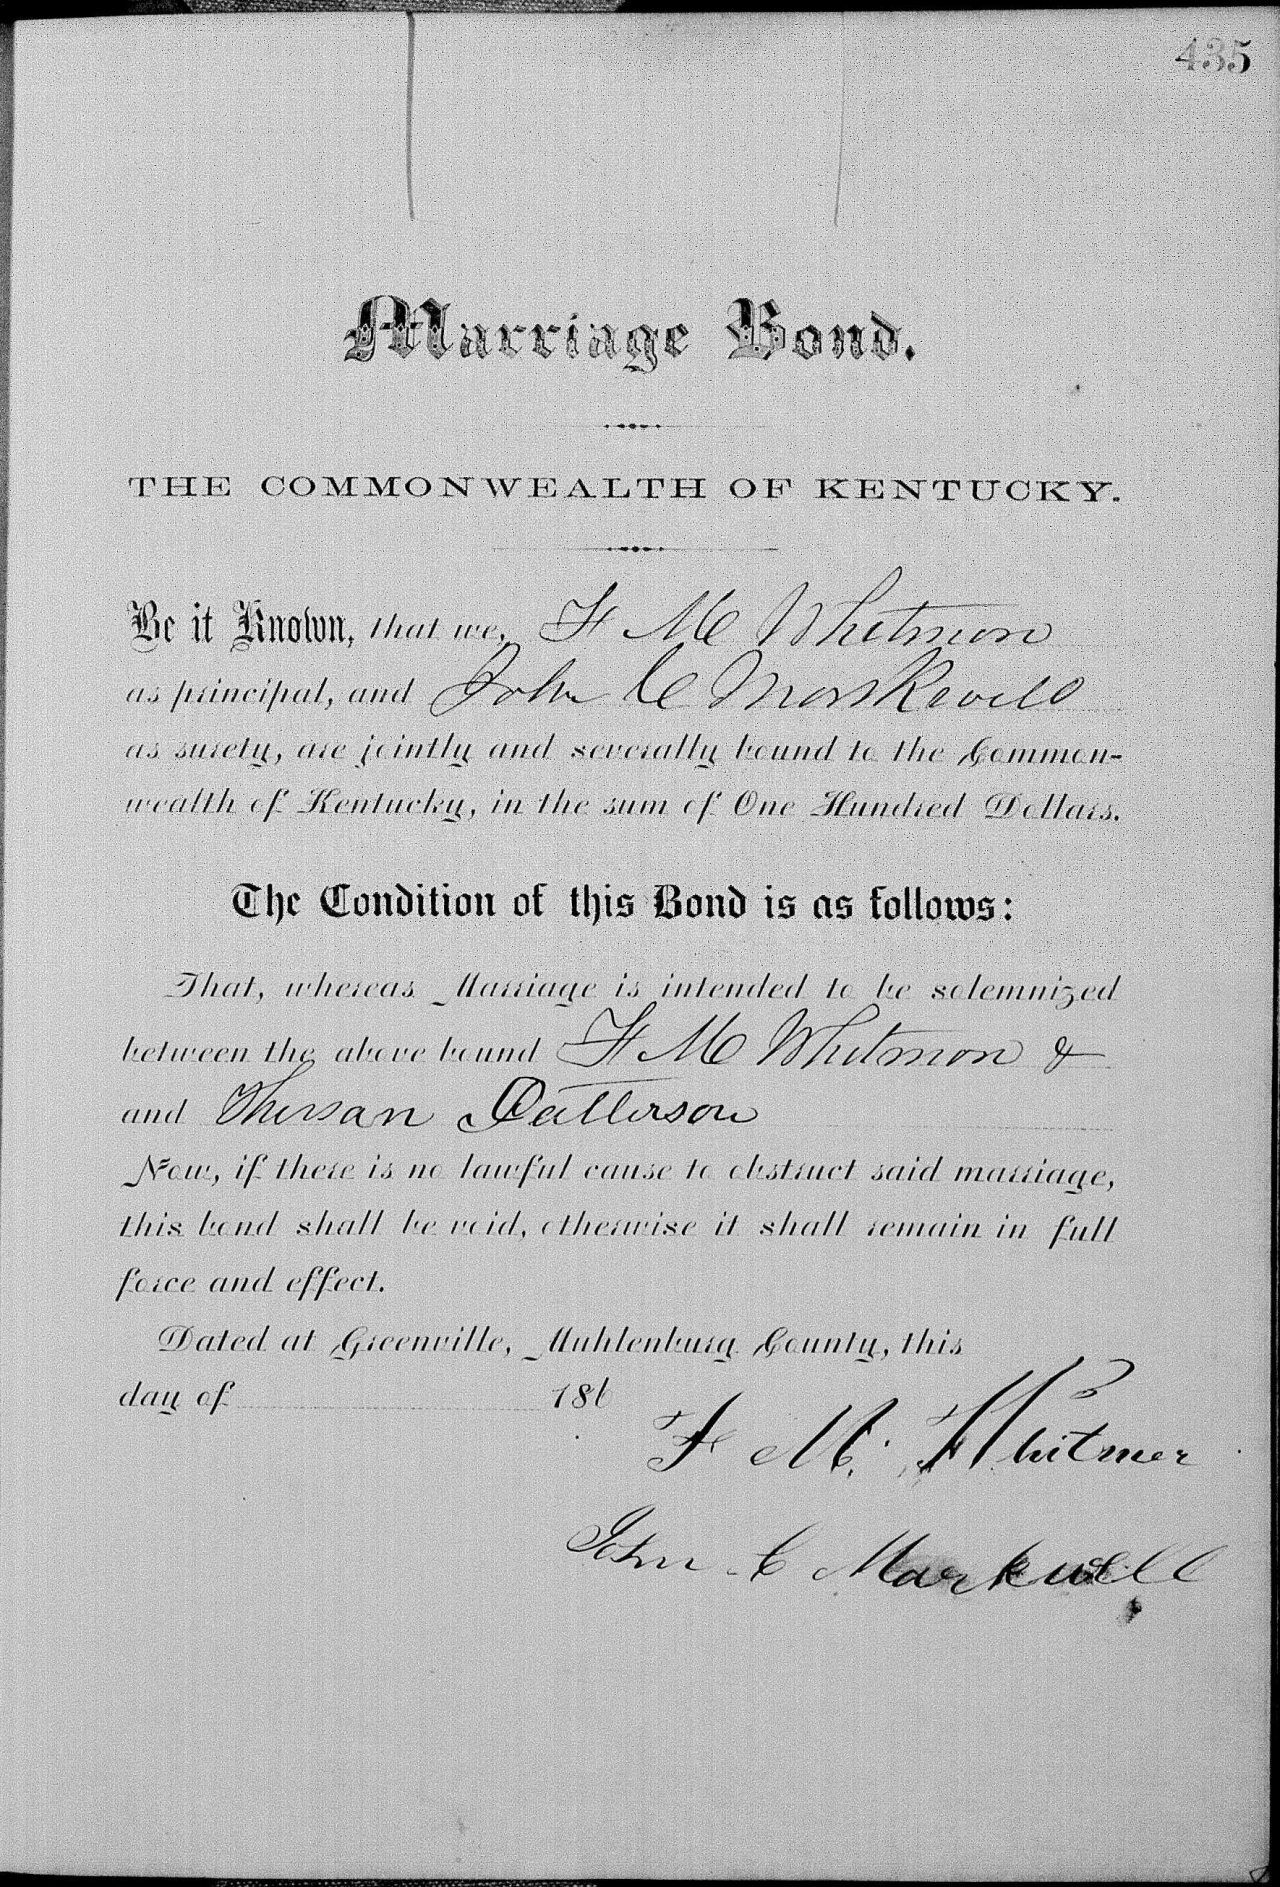 435
Marriage Bond.
THE COMMONWEALTH OF KENTUCKY.
Be it Known, that we, F M Whitmon
as principal, and John C Markwell
as surety, are jointly and severally bound to the Common-
wealth of Kentucky, in the sum of One Hundred Dollars.
The Condition of this Bond is as follows:
That, whereas Marriage is intended to be solemnized
between the above bound F M Whitmon &
and Thursan Patterson
Now, if there is no lawful cause to obstruct said marriage,
this bond shall be void, otherwise it shall remain in full
force and effect.
Dated at Greenville, Muhlenburg County, this
day of 186
F M. Whitmer
John C Markwell